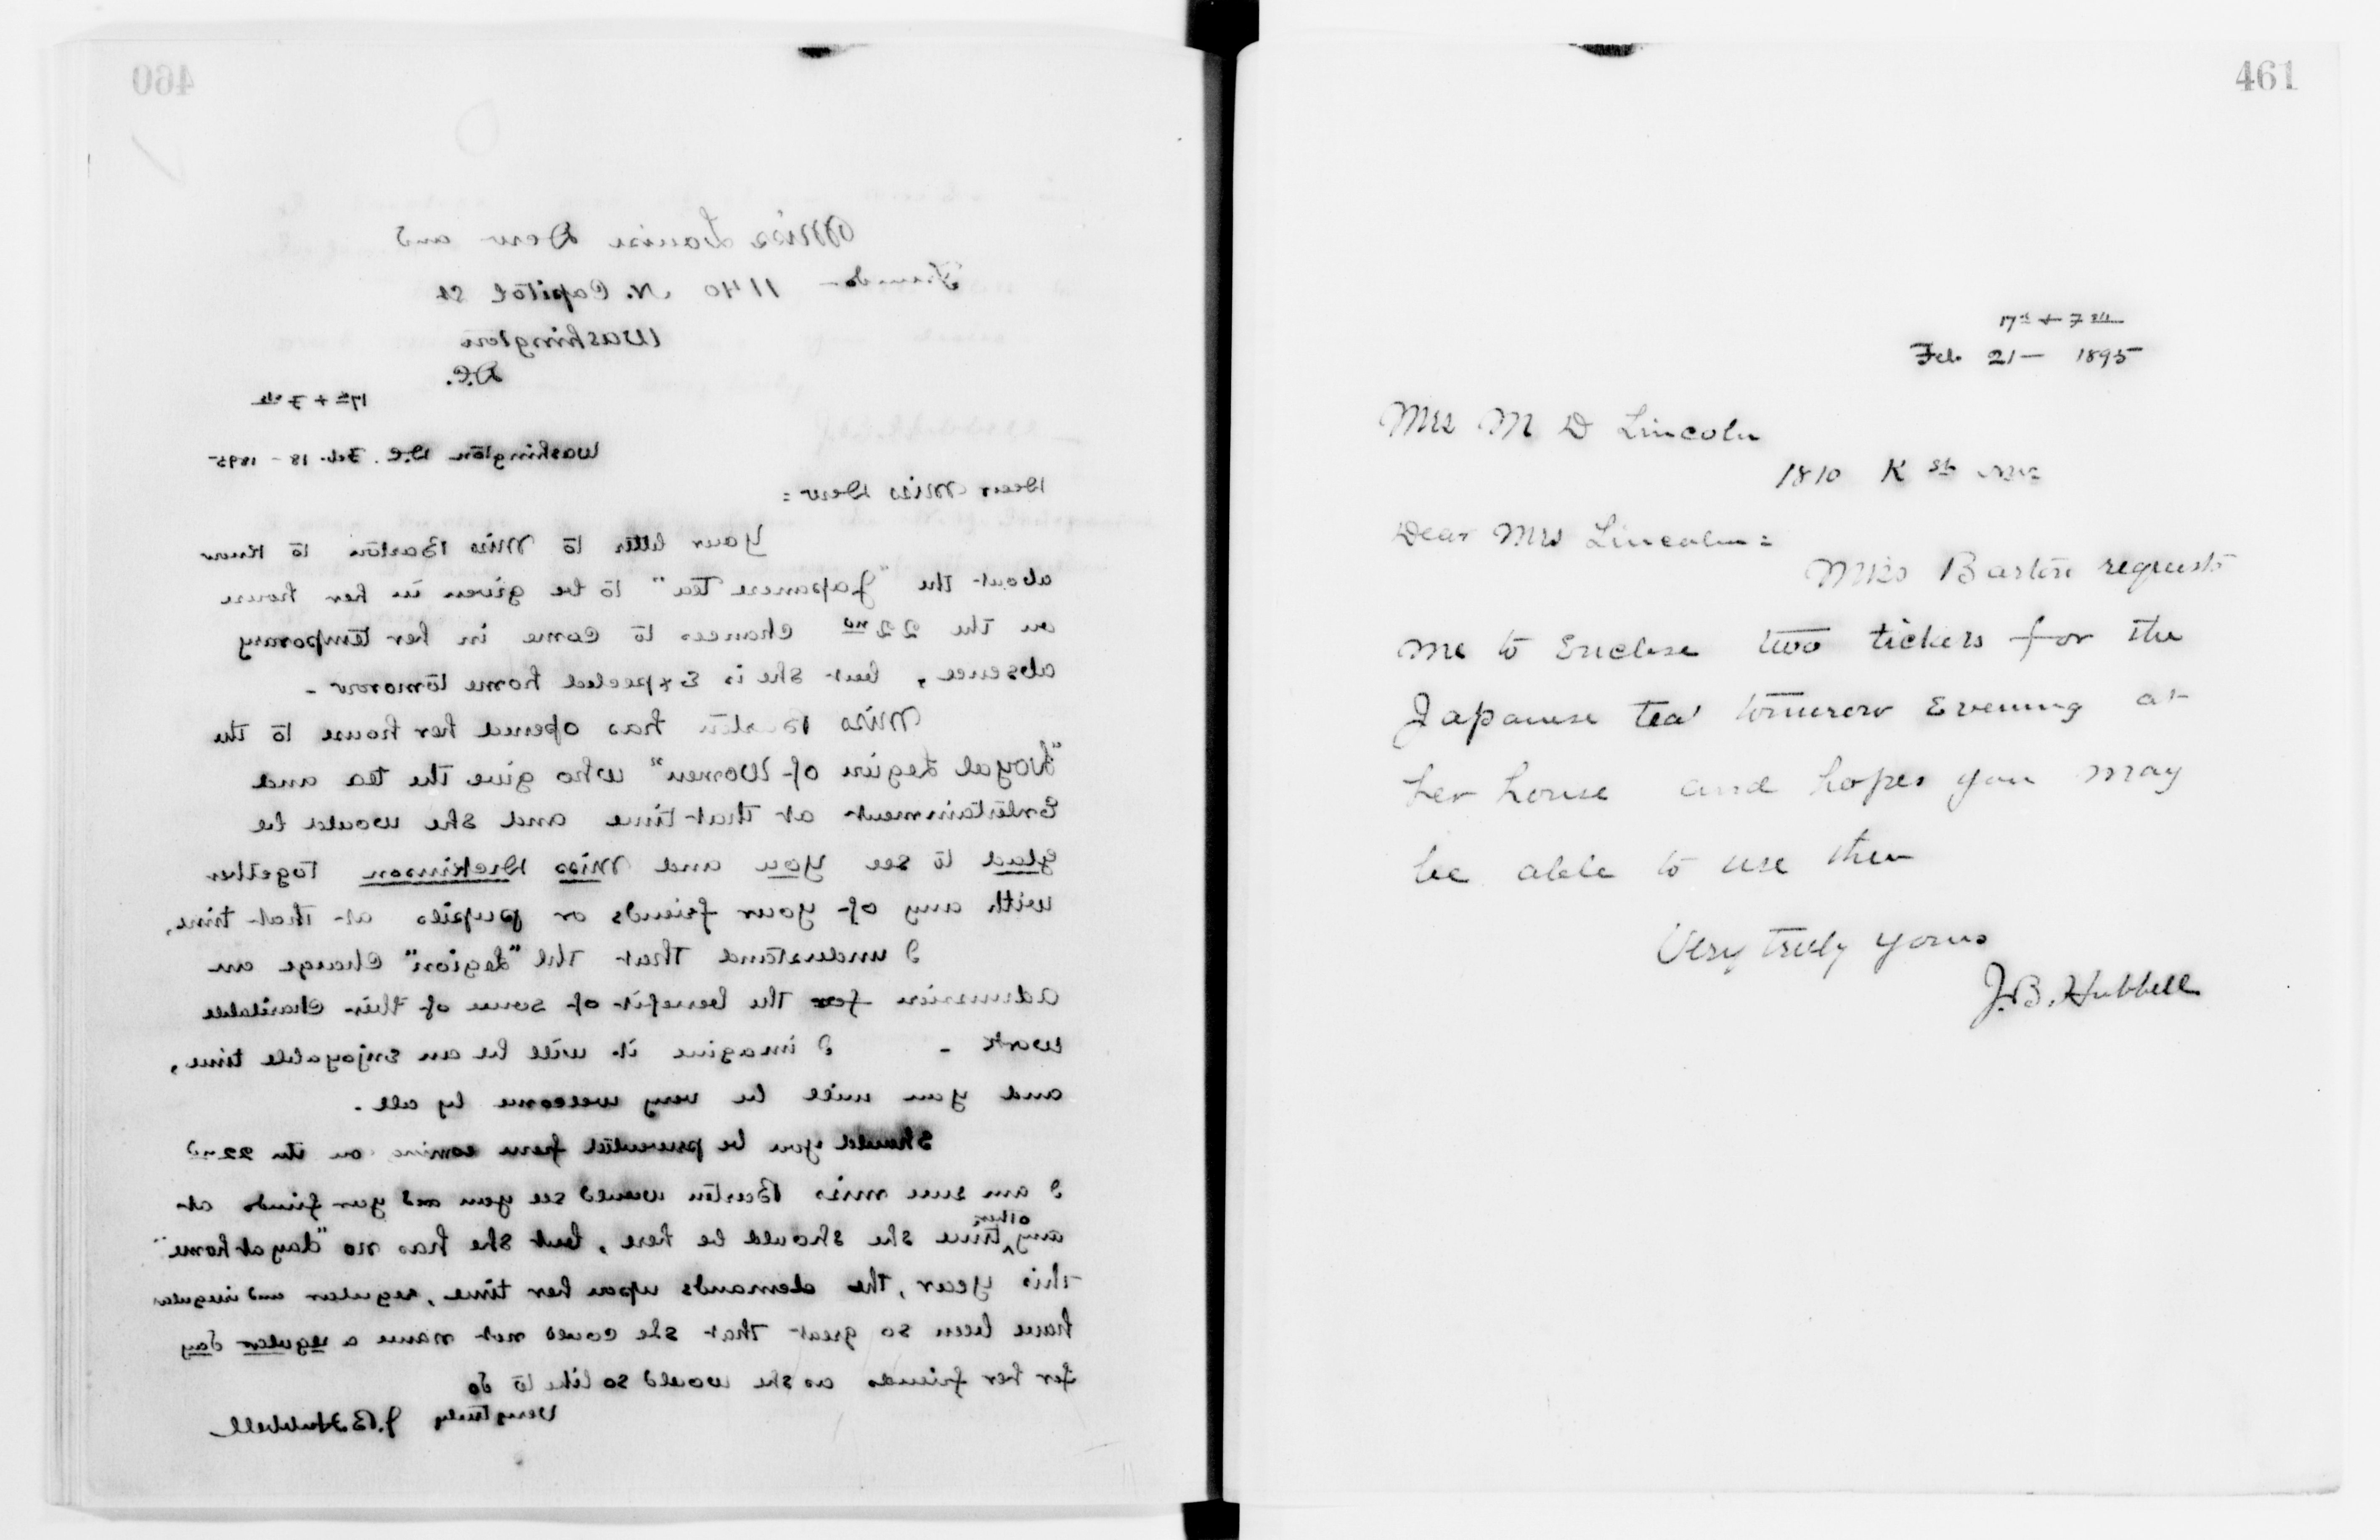 460
Miss Louise Dew and
Friends - 1140 N. Capitol St
Washington
D.C.
17th + F sts
Washington D.C. Feb. 18 - 1895-
Dear Miss Dew =
Your letter to Miss Barton to know
about the "Japanese Tea" to be given in her house
on the 22nd chances to come in her temporary
absence, but she is Expected home tomorow -
Miss Barton has opened her house to the
"Loyal Legion of Women" who give the tea and
Entertainment at that time and she would be
glad to see you and Miss Dickinson together
with any of your friends or pupils at that time,
I understand that the "Legion" charge an
admission for the benefit of some of their charitable
work - I imagine it will be an enjoyable time,
and you will be very welcome by all.
Should you be prevented from coming on the 22nd
I am sure miss Barton would see you and your friends at
any other time she should be here, but she has no "day at home"
this year, the demands upon her time, regular and irregular
have been so great that she could not name a regular day
for her friends as she would so like to do
Very truly J.B. Hubbell
461
17th + F sts
Feb. 21 - 1895
Mrs M D Lincoln
1810 K St NW
Dear Mrs Lincoln =
Miss Barton requests
me to Enclose two tickets for the
Japanese tea tomorow Evening at
her house and hopes you may
be able to use them
Very truly yours
J.B. Hubbell